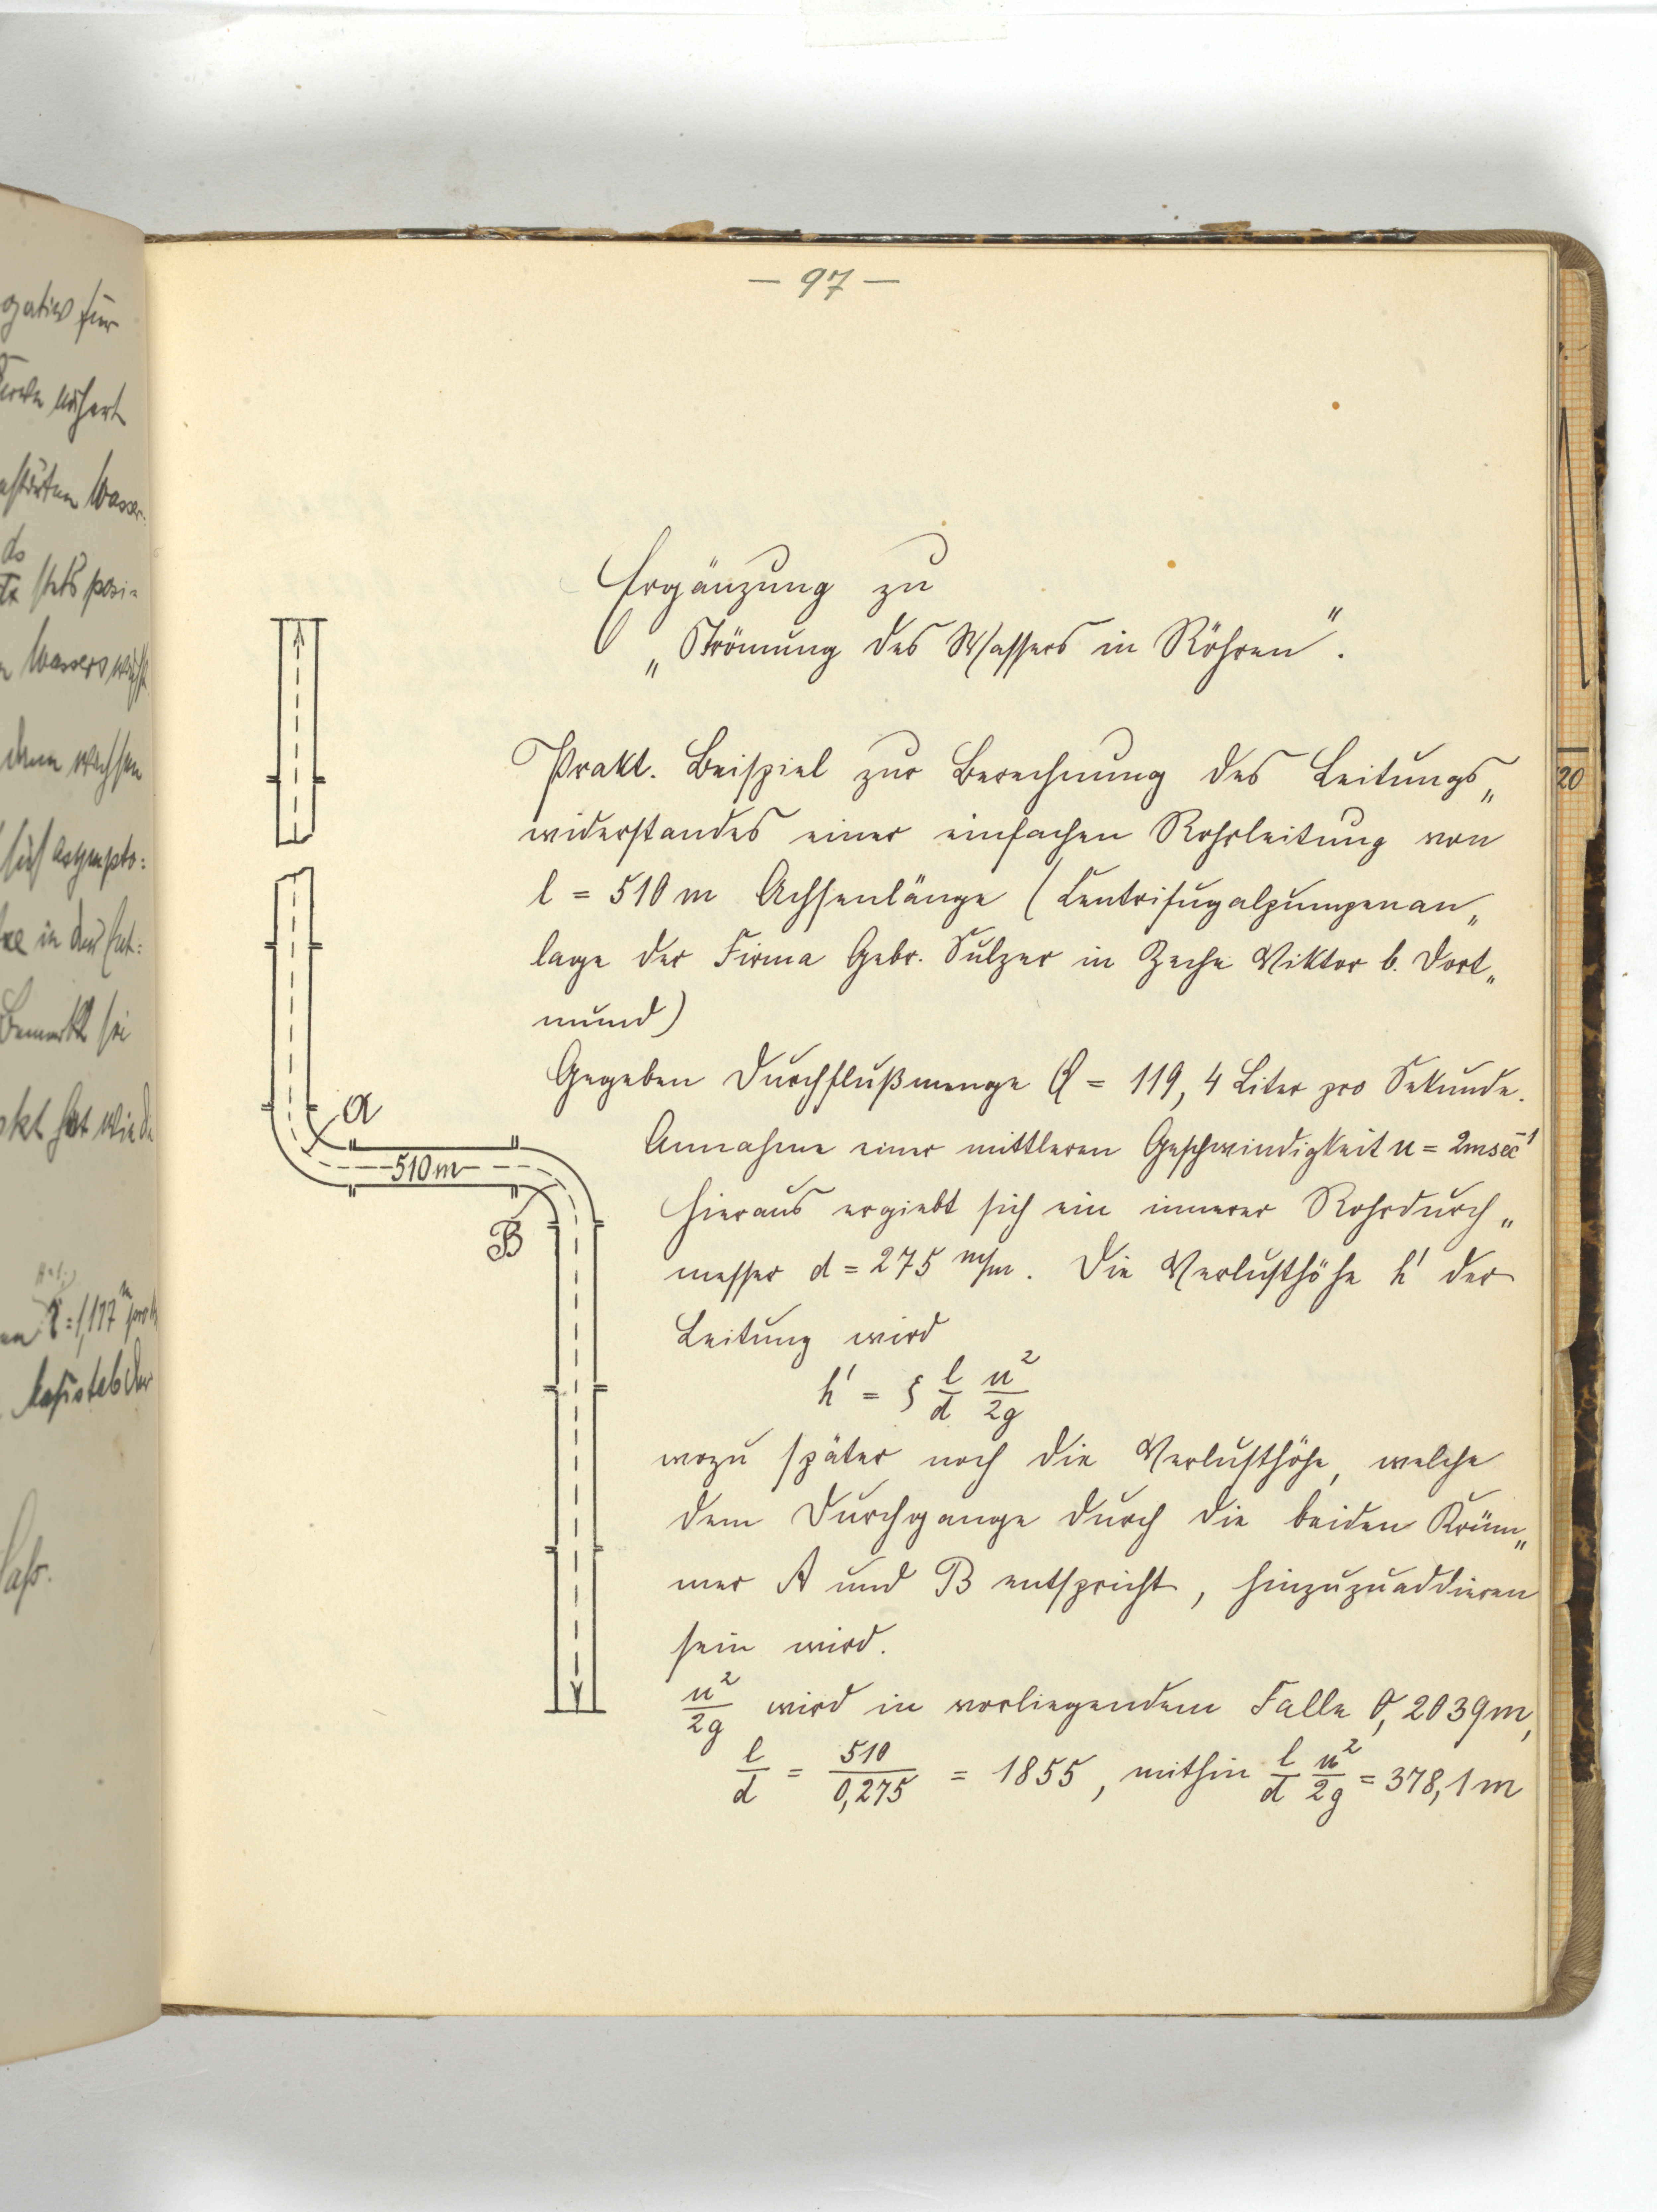 — 97 —
Ergänzung zu
„Strömung des Wassers in Röhren".
Prakt. Beispiel zur Berechnung des Leitungs„
widerstandes einer einfachen Rohrleitung von
l = 510 m Achsenlänge (Centrifugalpumpenan„
lage der Firma Gebr. Sulzer in Zeche Viktor b. Dort„
mund)
Gegeben Durchflußmenge Q = 119,4 Liter pro Sekunde.
Annahme einer mittleren Geschwindigkeit u = 2msec⁻¹
hieraus ergiebt sich ein innerer Rohrdurch„
messer d = 275 m/m. Die Verlusthöhe h' der
Leitung wird
h' = ξ l/d u²/2g
wozu später noch die Verlusthöhe, welche
dem Durchgange durch die beiden Krüm„
mer A und B entspricht, hinzuzuaddieren
sein wird.
u²/2g wird in vorliegendem Falle 0,2039m,
l/d = 510/0,275 = 1855, mithin l/d u²/2g = 378,1m
A
510 m
B
gativ für
nähert
Wasser-
stets posi-
Wassers wächst
wachsen
sich asympto:
in der
Bemerkt sei
20